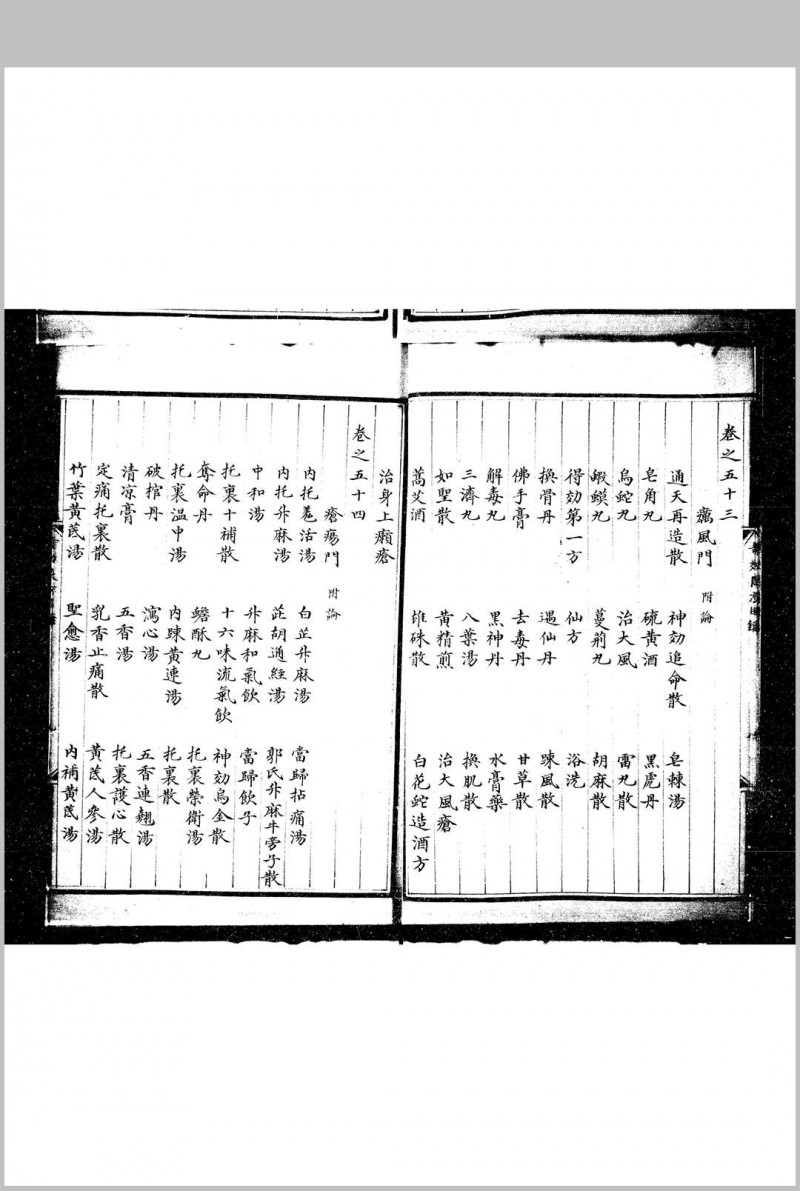 卷之五十三
癘風門 附論
通天再造散 神効追命散 皂棘湯
皂角丸 硫黄酒 黑虎丹
烏蛇丸 治大風 雷丸散
蝦蟆丸 蔓荊丸 胡麻散
得効第一方 仙方 浴洗
換骨丹 遇仙丹 踈風散
佛手膏 去毒丹 甘草散
解毒丸 黑神丹 水膏藥
三濟丸 八葉湯 換肌散
如聖散 黄精煎 治大風瘡
蒿艾酒 雄硃散 白花蛇造酒方
治身上癩瘡
卷之五十四
瘡瘍門 附論
内托羗活湯 白芷升麻湯 當歸拈痛湯
内托升麻湯 茈胡通經湯 郭氏升麻牛旁子散
中和湯 升麻和氣飲 當歸飲子
托裏十補散 十六味流氣飲 神効烏金散
奪命丹 蟾酥丸 托裏榮衛湯
托裏温中湯 内踈黄連湯 托裏散
破棺丹 瀉心湯 五香連翹湯
清凉膏 五香湯 托裏護心散
定痛托裏散 乳香止痛散 黄茋人參湯
竹葉黄茋湯 聖愈湯 内補黄茋湯